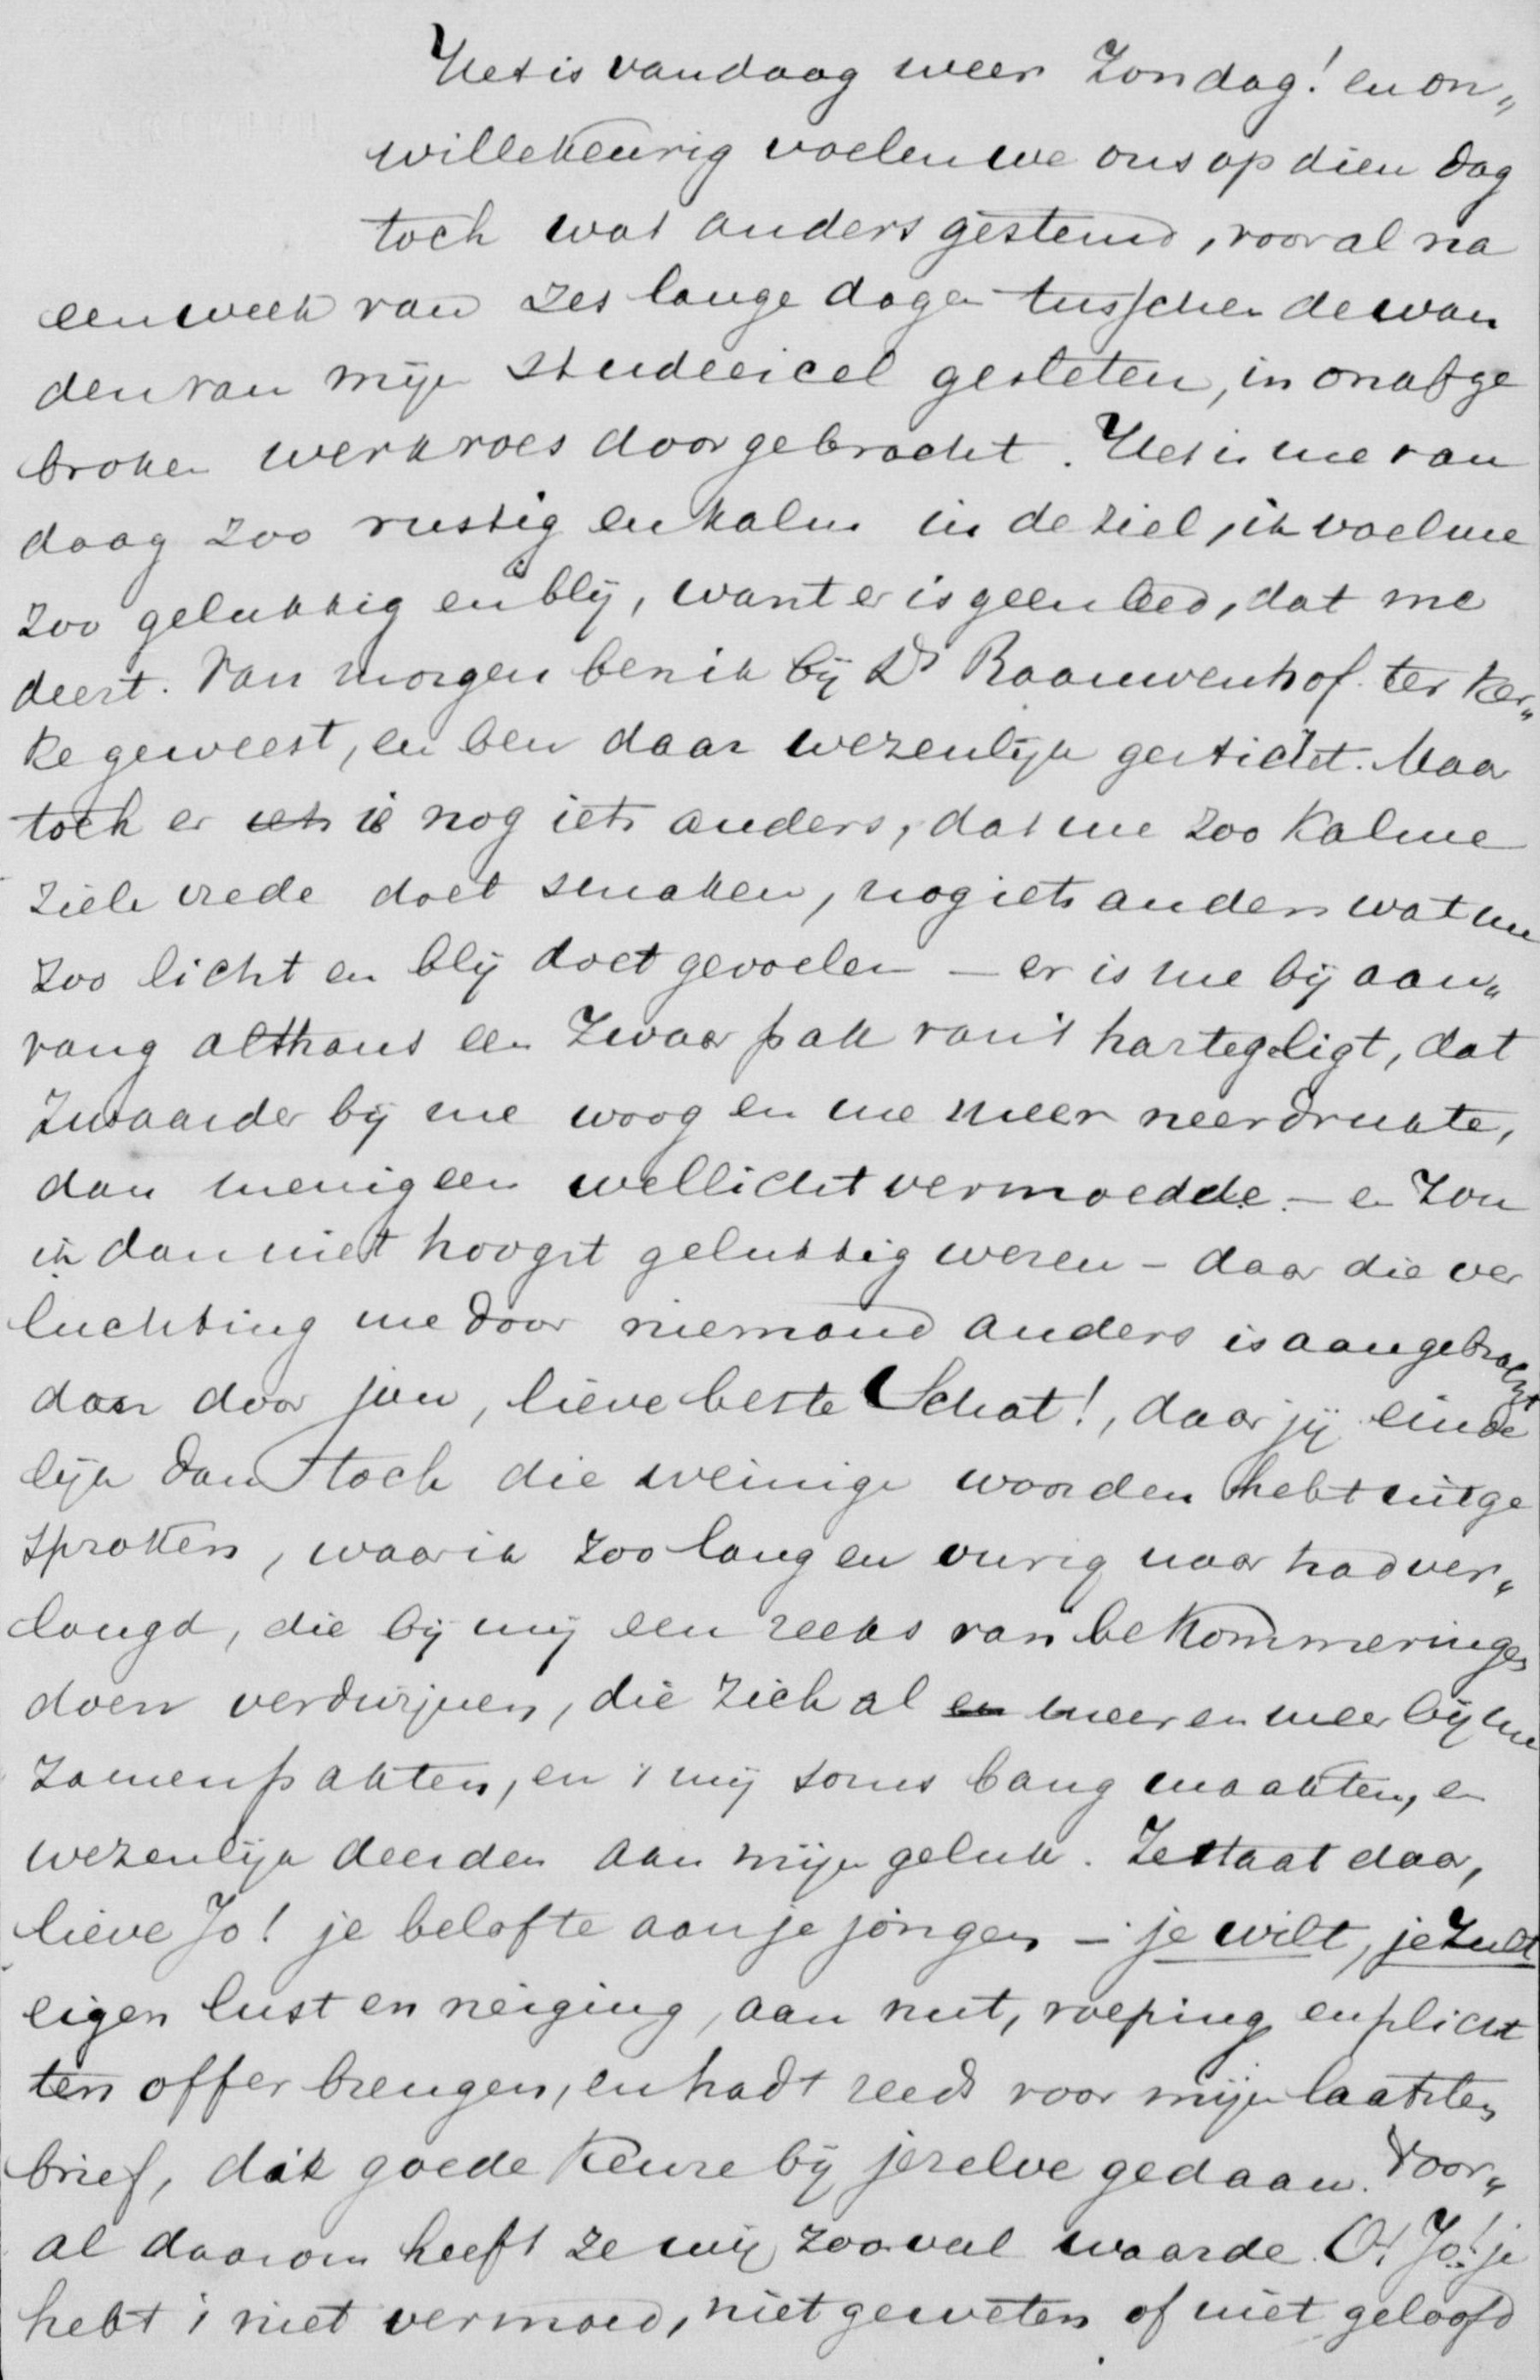 Het is vandaag weer Zondag! en on„
willekeurig voelen we ons op dien dag
toch wat anders gestemd, vooral na
een week van zes lange dagen tusschen de wan
den van mijn studeercel gesleten, in onafge
broken werkroes doorgebracht. Het is me van
daag zoo rustig en kalm in de ziel, ik voel me
zoo gelukkig en blij, want er is geen leed, dat me
deert. Van morgen ben ik bij Ds Raauwenhof ter ker„
ke geweest, en ben daar wezenlijk gesticht. Maar
toch er iets is nog iets anders, dat me zoo kalme
ziele vrede doet smaken, nog iets anders wat me
zoo licht en blij doet gevoelen – er is me bij aan„
vang althans een zwaar pak van 't harte geligt, dat
zwaarder bij me woog en me meer neerdrukte,
dan menigeen wellicht vermoedde – en zou
ik dan niet hoogst gelukkig wezen – daar die ver
luchting me door niemand anders is aangebracht
dan door jou, lieve beste Schat!, daar jij einde
lijk dan toch die weinige woorden hebt uitge
sproken, waar ik zoo lang en vurig naar had ver„
langd, die bij mij een reeks van bekommeringen
doen verdwijnen, die zich al en meer en meer bij me
zamenpakten, en 't mij soms bang maakten, en
wezenlijk deerden aan mijn geluk. Ze staat daar,
lieve Jo! je belofte aan je jongen – je wilt, je zult
eigen lust en neiging, aan nut, roeping en plicht
ten offer brengen, en hadt reeds voor mijn laatsten
brief, die goede keuze bij jezelve gedaan. Voor„
al daarom heeft ze mij zooveel waarde. O! Jo! je
hebt 't niet vermoed, niet geweten of niet geloofd